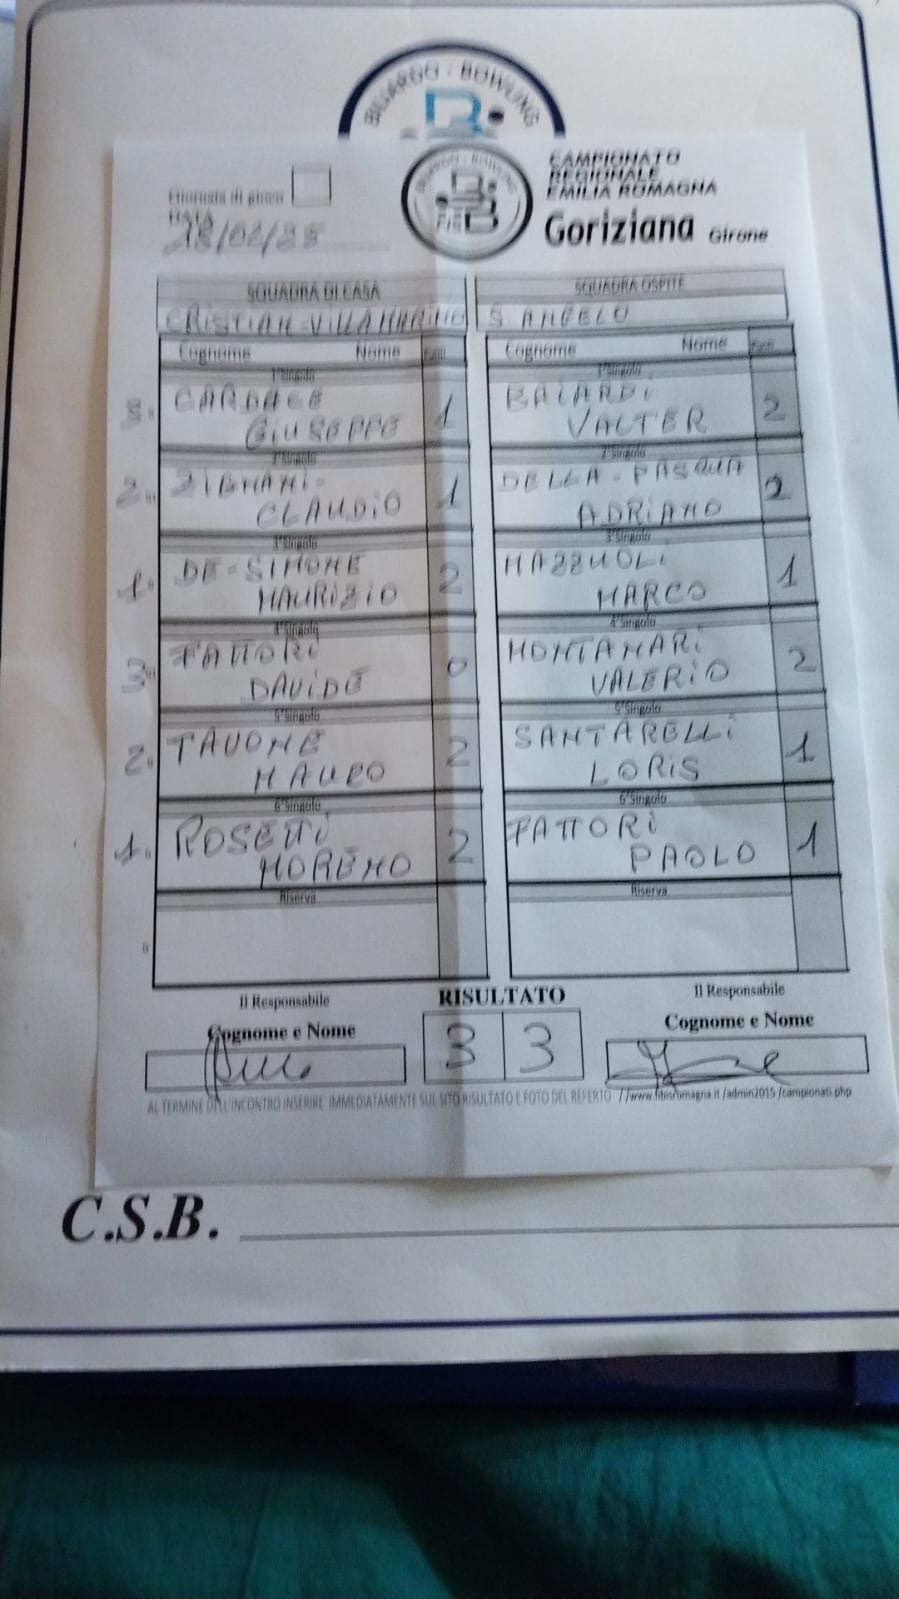 BILIARDO - BOWLING
BILIARDO - BOWLING
CAMPIONATO
REGIONALE
EMILIA ROMAGNA
Goriziana Girone
Giornata di gioco
DATA
SQUADRA DI CASA
SQUADRA OSPITE
CRISTIAN-VILLAMARINO
S. ANGELO
Cognome Nome Punti
Cognome Nome Punti
1°Singolo
1°Singolo
3. CARDACE
GIUSEPPE 1
BAIARDI
VALTER 2
2°Singolo
2°Singolo
2. ZIGNANI-
CLAUDIO 1
DELLA-PASQUA
ADRIANO 2
3°Singolo
3°Singolo
1. DE-SIMONE
MAURIZIO 2
MAZZUOLI
MARCO 1
4°Singolo
4°Singolo
3. FATTORI
DAVIDE 0
MONTANARI
VALERIO 2
5°Singolo
5°Singolo
2. TAVONE
MAURO 2
SANTARELLI
LORIS 1
6°Singolo
6°Singolo
1. ROSETTI
MORENO 2
FATTORI
PAOLO 1
Riserva
Riserva
Il Responsabile
RISULTATO
Il Responsabile
Cognome e Nome
3 3
Cognome e Nome
AL TERMINE DELL'INCONTRO INSERIRE IMMEDIATAMENTE SUL SITO RISULTATO E FOTO DEL REFERTO //www.fibisromagna.it /admin2015 /campionati.php
C.S.B.